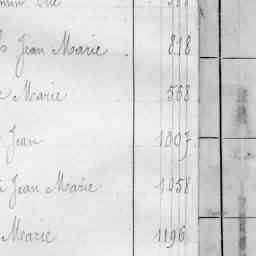 Jean Marie 818
Marie 568
Jean 1007
Jean Marie 1058
Marie 1196